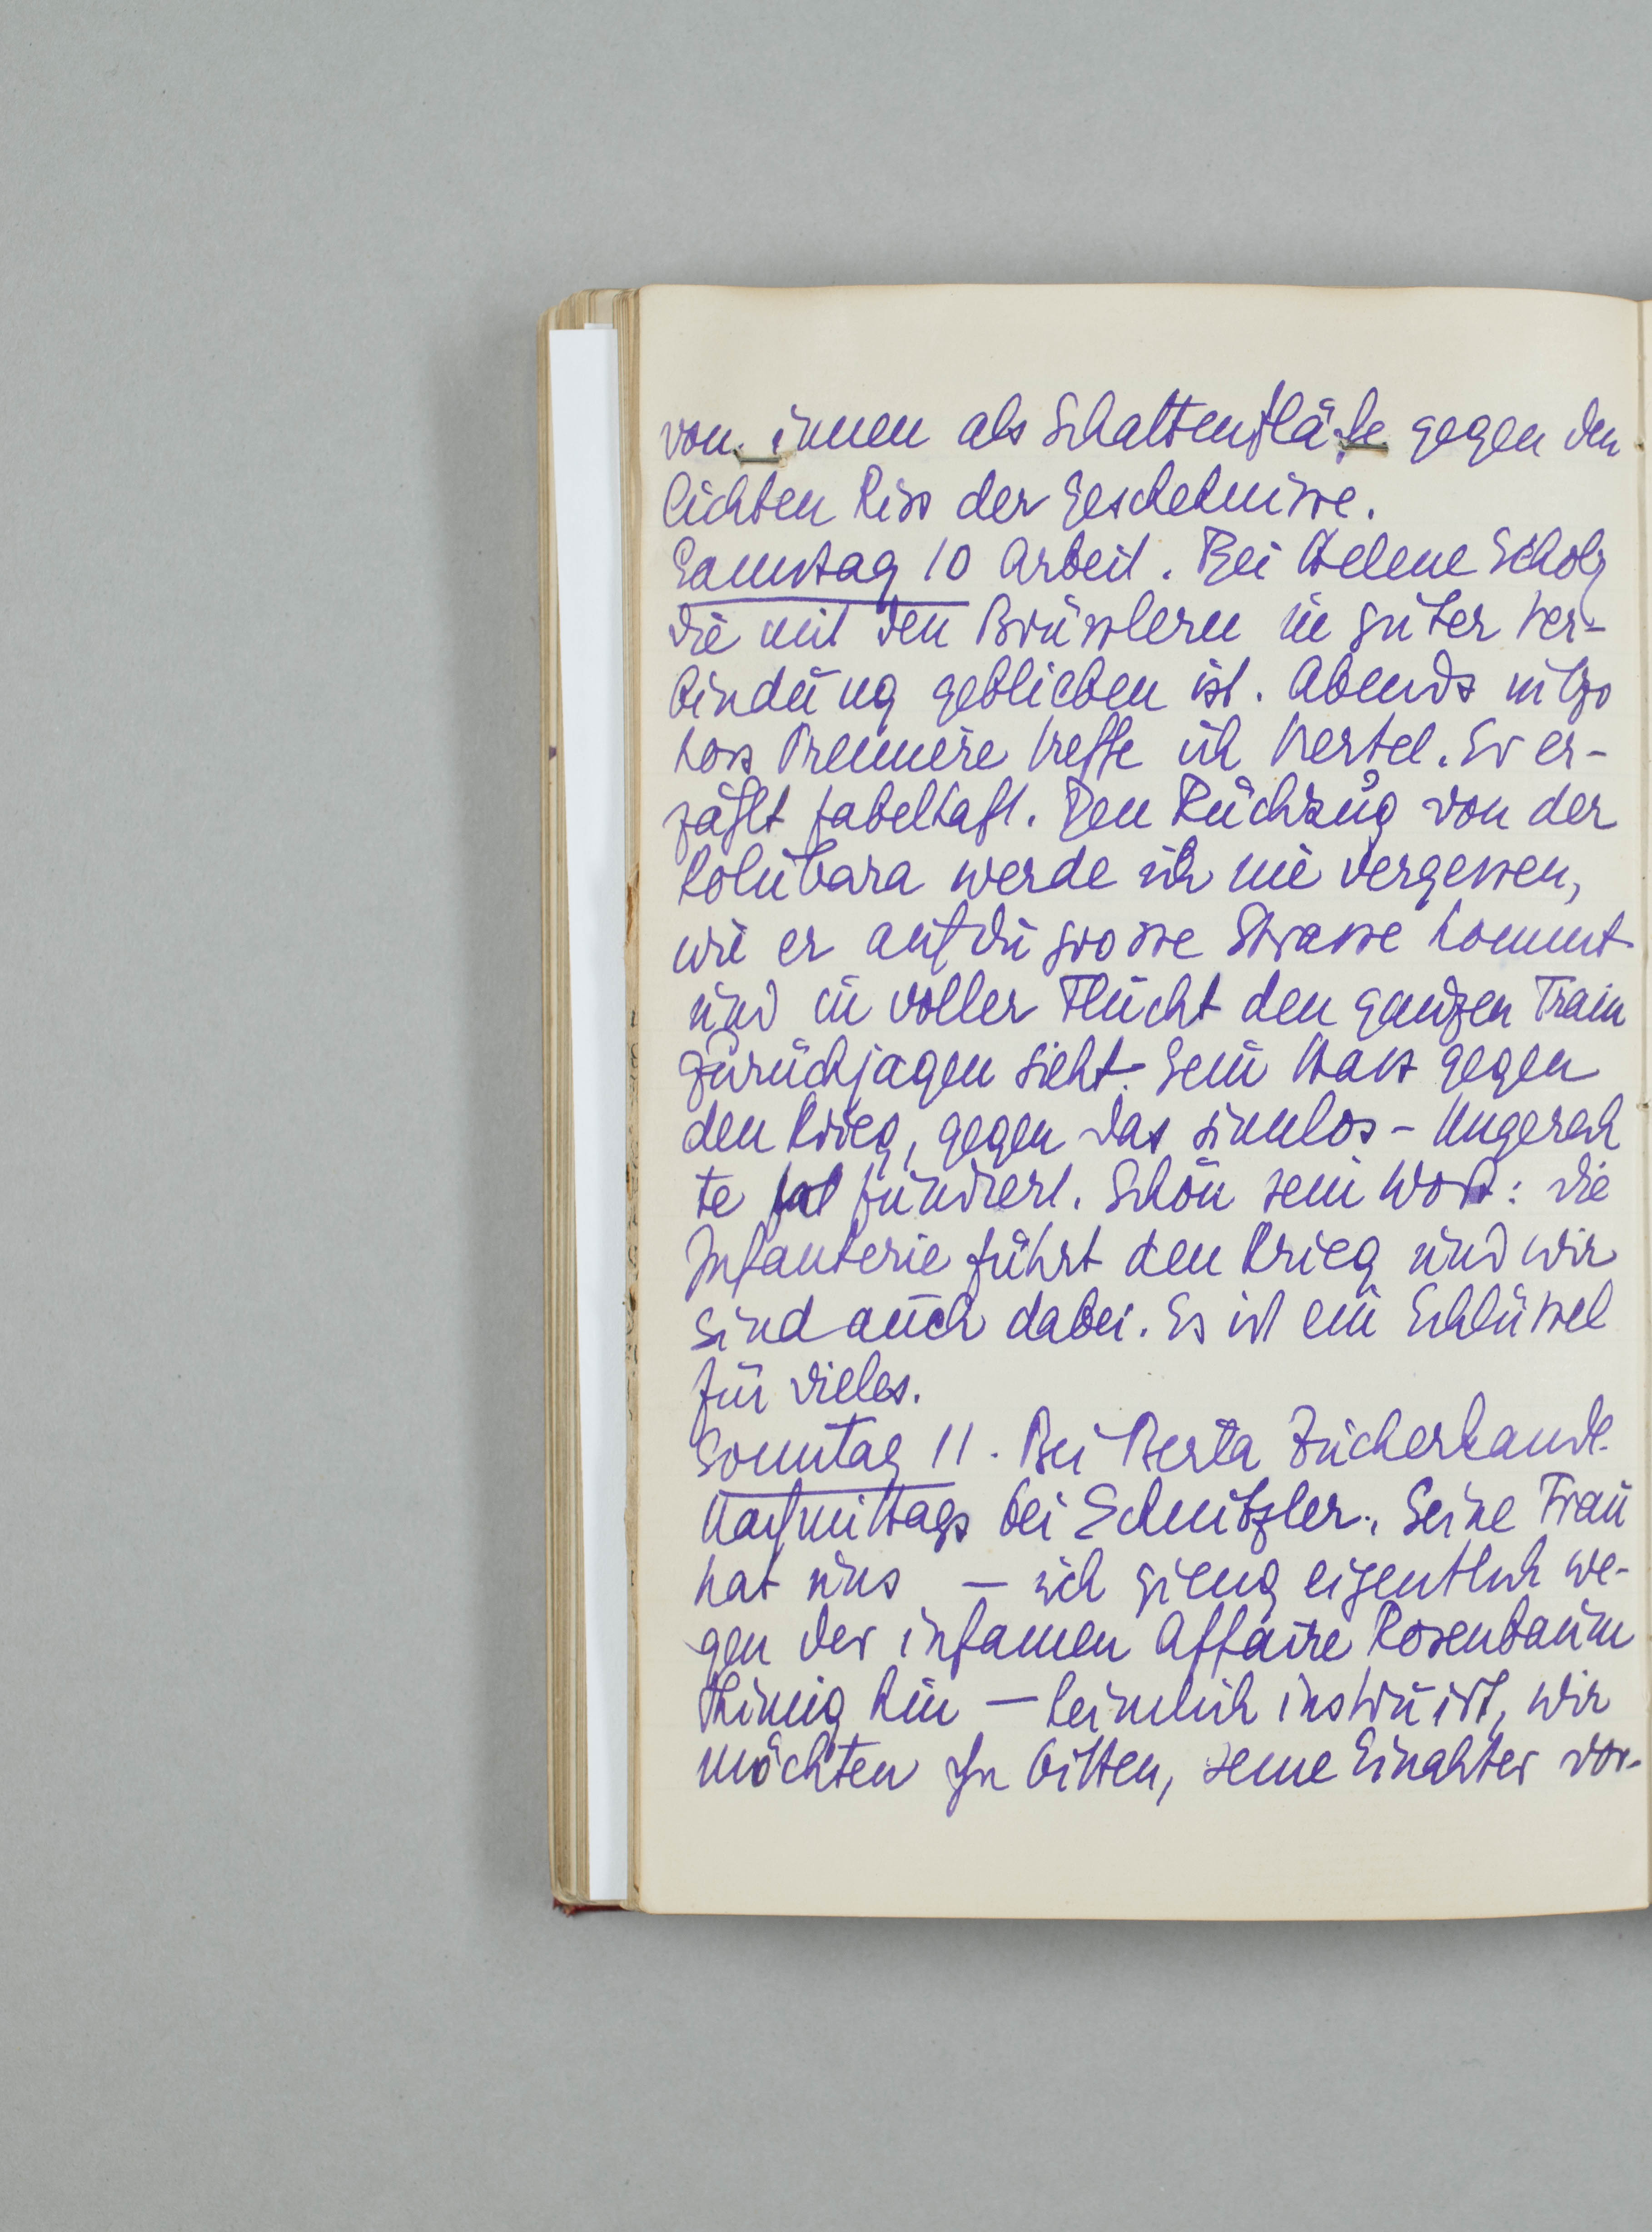 von innen als Schattenfläche gegen den
lichten Riss der Geschehnisse.
Samstag 10 Arbeit. Bei Helene Scholz
die mit den Brüsslern in guter Ver-
bindung geblieben ist. Abends in
Premiere treffe ich Hertel. Er er-
zählt fabelhaft. Den Rückzug von der
Kolubara werde ich nie vergessen,
wie er auf die grosse Strasse kommt
und in voller Flucht den ganzen Train
zurückjagen sieht. Sein Hass gegen
den Krieg, gegen das sinnlos-Ungerech
te fundiert. Schön sein Wort: die
Infanterie führt den Krieg und wir
sind auch dabei. Es ist ein Schlüssel
für vieles.
Sonntag 11. Bei Berta Zuckerkandl.
Nachmittags bei Schnitzler. Seine Frau
hat uns – ich gieng eigentlich we-
gen der infamen Affaire Rosenbaum
Thimig hin – heimlich instruirt, wir
möchten ihn bitten, seine Einakter vor-